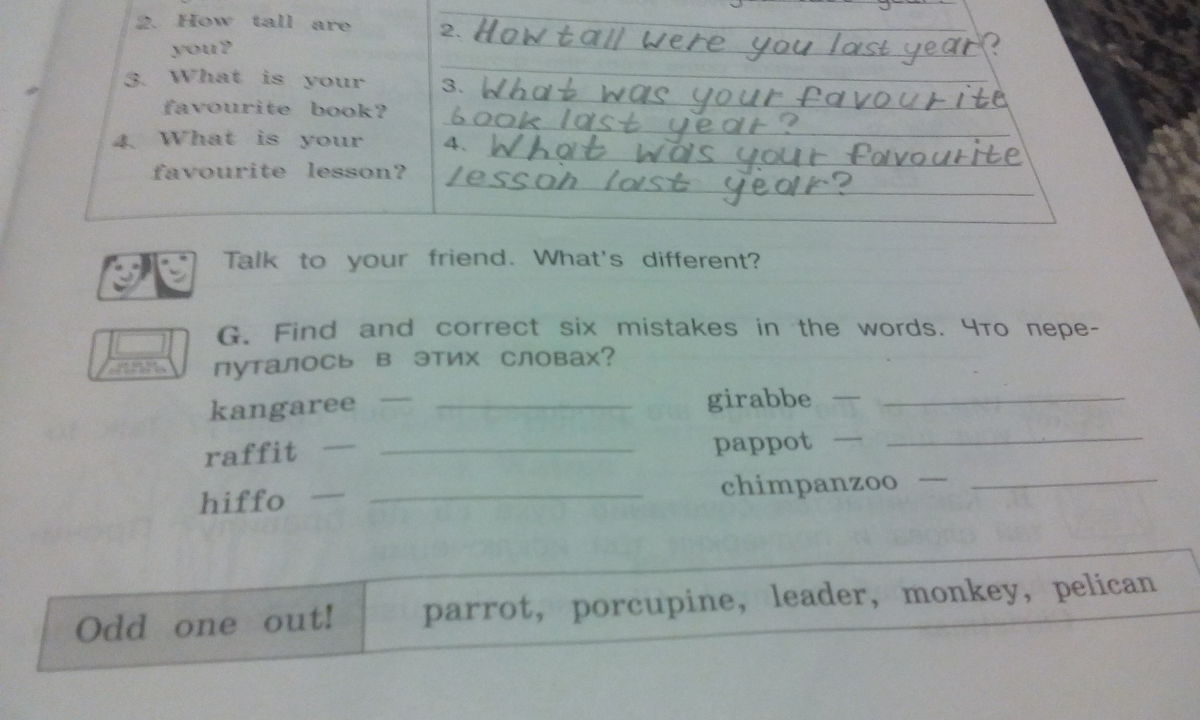 2. How tall are
you?
2. How tall were you last year?
3. What is your
favourite book?
3. What was your favourite
book last year?
4. What is your
favourite lesson?
4. What was your favourite
lesson last year?
Talk to your friend. What's different?
G. Find and correct six mistakes in the words. Что пере-
путалось в этих словах?
kangaree —
girabbe —
raffit —
pappot —
hiffo —
chimpanzoo —
Odd one out!
parrot, porcupine, leader, monkey, pelican